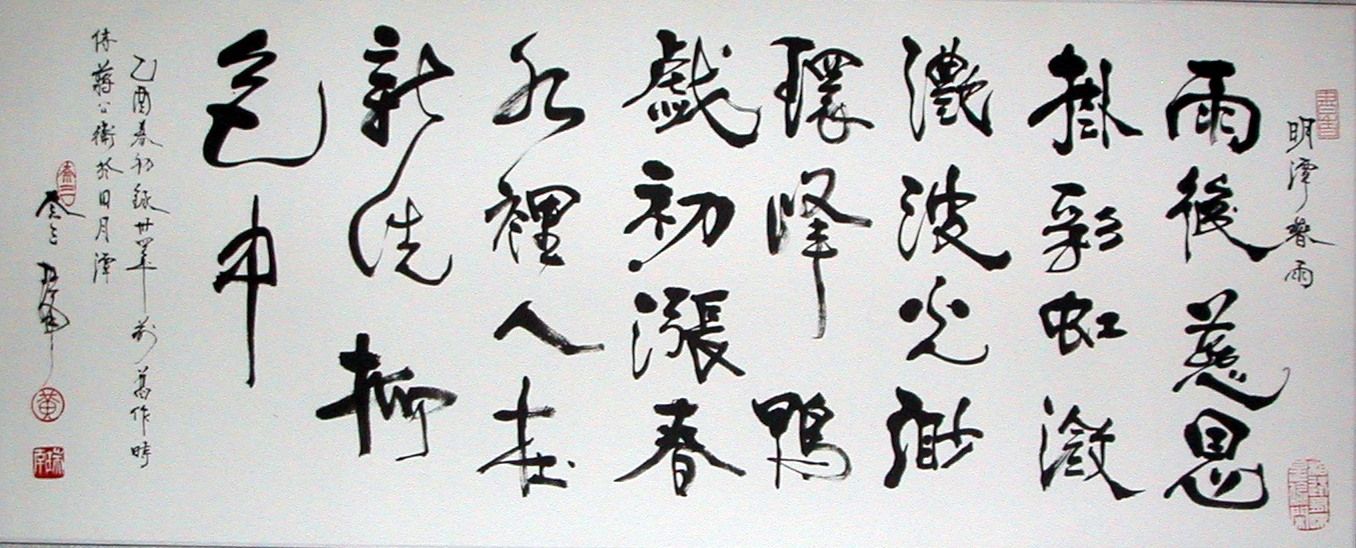 明潭春雨
雨後慈恩
掛彩虹瀲
灩波光渺
環峰鴨
戲初漲春
水裡人在
新洗柳
色中
乙酉春初錄卅四年前舊作時
侍蔣公衛於日月潭